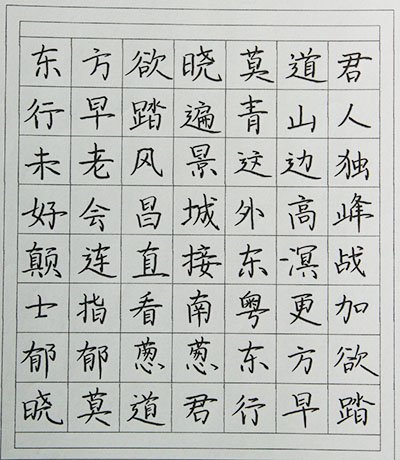 东方欲晓莫道君
行早踏遍青山人
未老风景这边独
好会昌城外高峰
颠连直接东溟战
士指看南粤更加
郁郁葱葱东方欲
晓莫道君行早踏